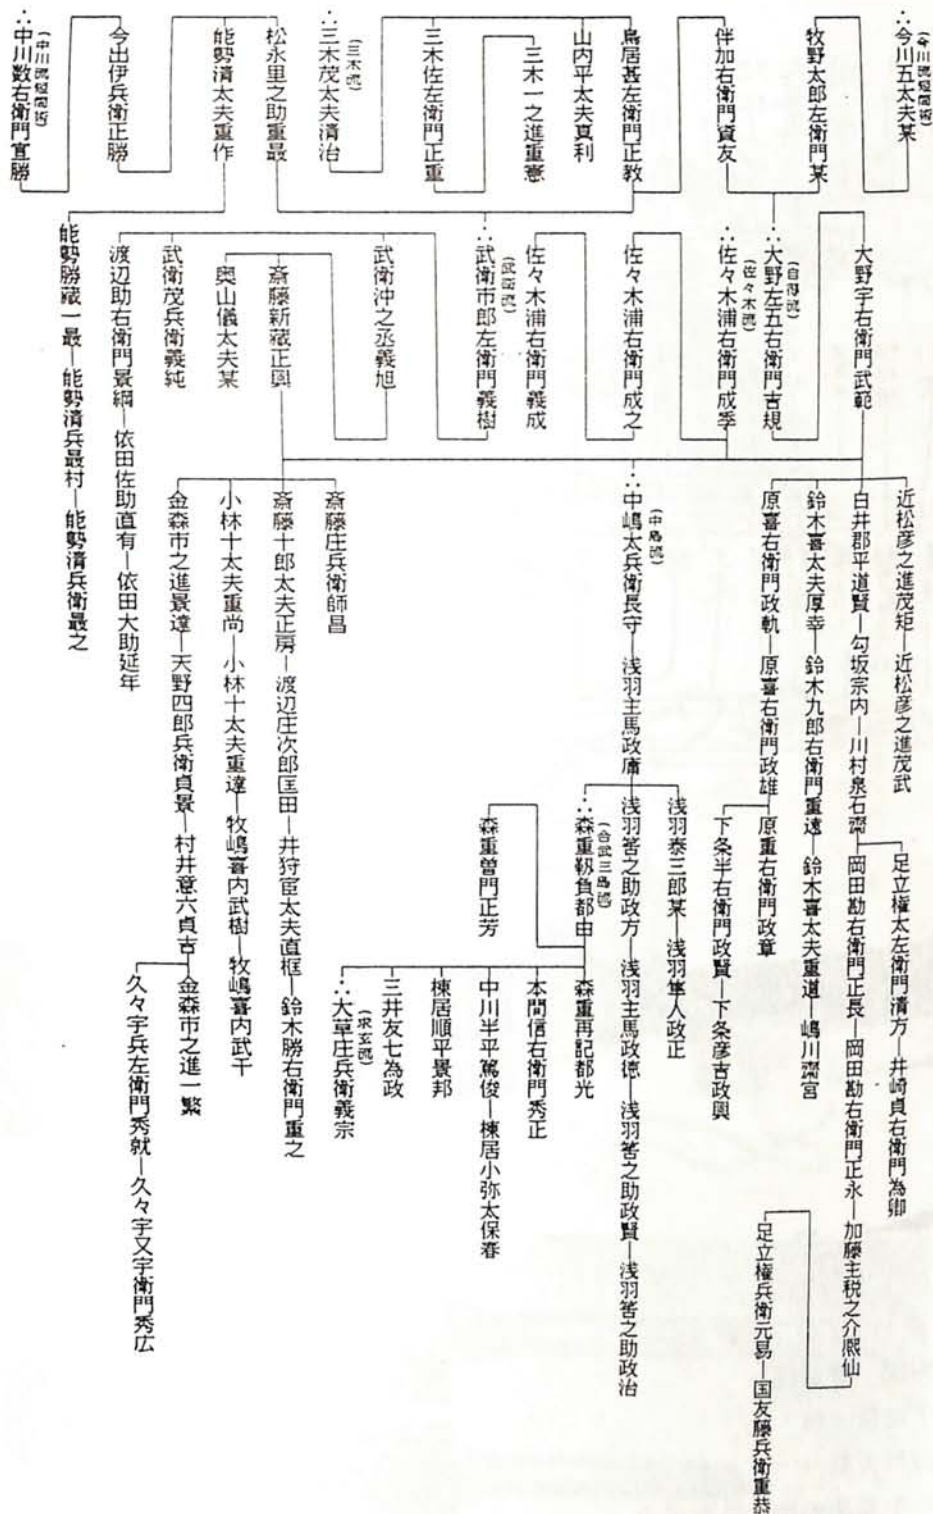 (今川流短筒術)
∴今川五太夫某
牧野太郎左衛門某
伴加右衛門資友
鳥居甚左衛門正教
山内平太夫真利
三木一之進重憲
三木佐左衛門正重
(三木流)
∴三木茂太夫清治
松永里之助重最
能勢済太夫重作
今出伊兵衛正勝
(中川流短筒術)
∴中川数右衛門宜勝
大野宇右衛門武範
(自得流)
∴大野左五右衛門吉規
(佐々木流)
∴佐々木浦右衛門成季
佐々木浦右衛門成之
佐々木浦右衛門義成
(武衛流)
∴武衛市郎左衛門義樹
武衛沖之丞義旭
斎藤新蔵正興
奥山儀太夫某
武衛茂兵衛義純
渡辺助右衛門景綱―依田佐助直有―依田大助延年
能勢勝蔵一最―能勢済兵最村―能勢済兵衛最之
近松彦之進茂矩―近松彦之進茂武
白井郡平道賢―勾坂宗内―川村泉石齋
足立権太左衛門清方―井崎貞右衛門為卿
岡田勘右衛門正長―岡田勘右衛門正永―加藤主税之介熈仙
足立権兵衛元易―国友藤兵衛重恭
鈴木喜太夫厚幸―鈴木九郎右衛門重遠―鈴木喜太夫重道―嶋川齋宮
原喜右衛門政軌―原喜右衛門政雄
原重右衛門政章
下条半右衛門政賢―下条彦吉政興
(中島流)
∴中嶋太兵衛長守―浅羽主馬政庸
浅羽泰三郎某―浅羽隼人政正
浅羽筈之助政方―浅羽主馬政徳―浅羽筈之助政賢―浅羽筈之助政治
(合武三島流)
∴森重靱負都由
森重曽門正芳
森重再記都光
本間信右衛門秀正
中川半平篤俊―棟居小弥太保春
棟居順平景邦
三井友七為政
(求玄流)
∴大草庄兵衛義宗
斎藤庄兵衛師昌
斎藤十郎太夫正房―渡辺庄次郎匡田―井狩宦太夫直框―鈴木勝右衛門重之
小林十太夫重尚―小林十太夫重達―牧嶋喜内武樹―牧嶋喜内武干
金森市之進景達―天野四郎兵衛貞景―村井意六貞吉
金森市之進一繁
久々宇兵左衛門秀就―久々宇又宇衛門秀広